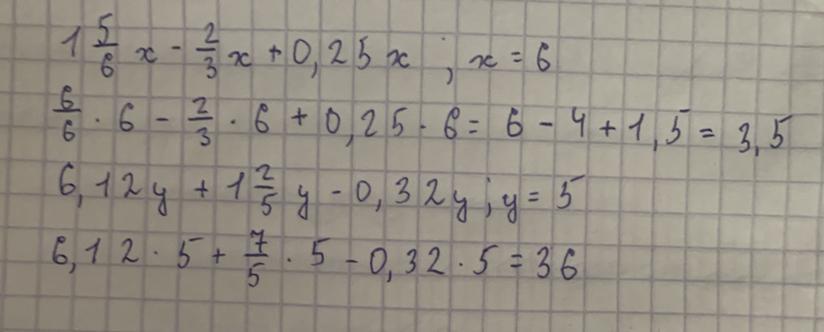 1 5/6 x - 2/3 x + 0,25 x ; x = 6
6/6 · 6 - 2/3 · 6 + 0,25 · 6 = 6 - 4 + 1,5 = 3,5
6,12y + 1 2/5 y - 0,32y ; y = 5
6,12 · 5 + 7/5 · 5 - 0,32 · 5 = 36